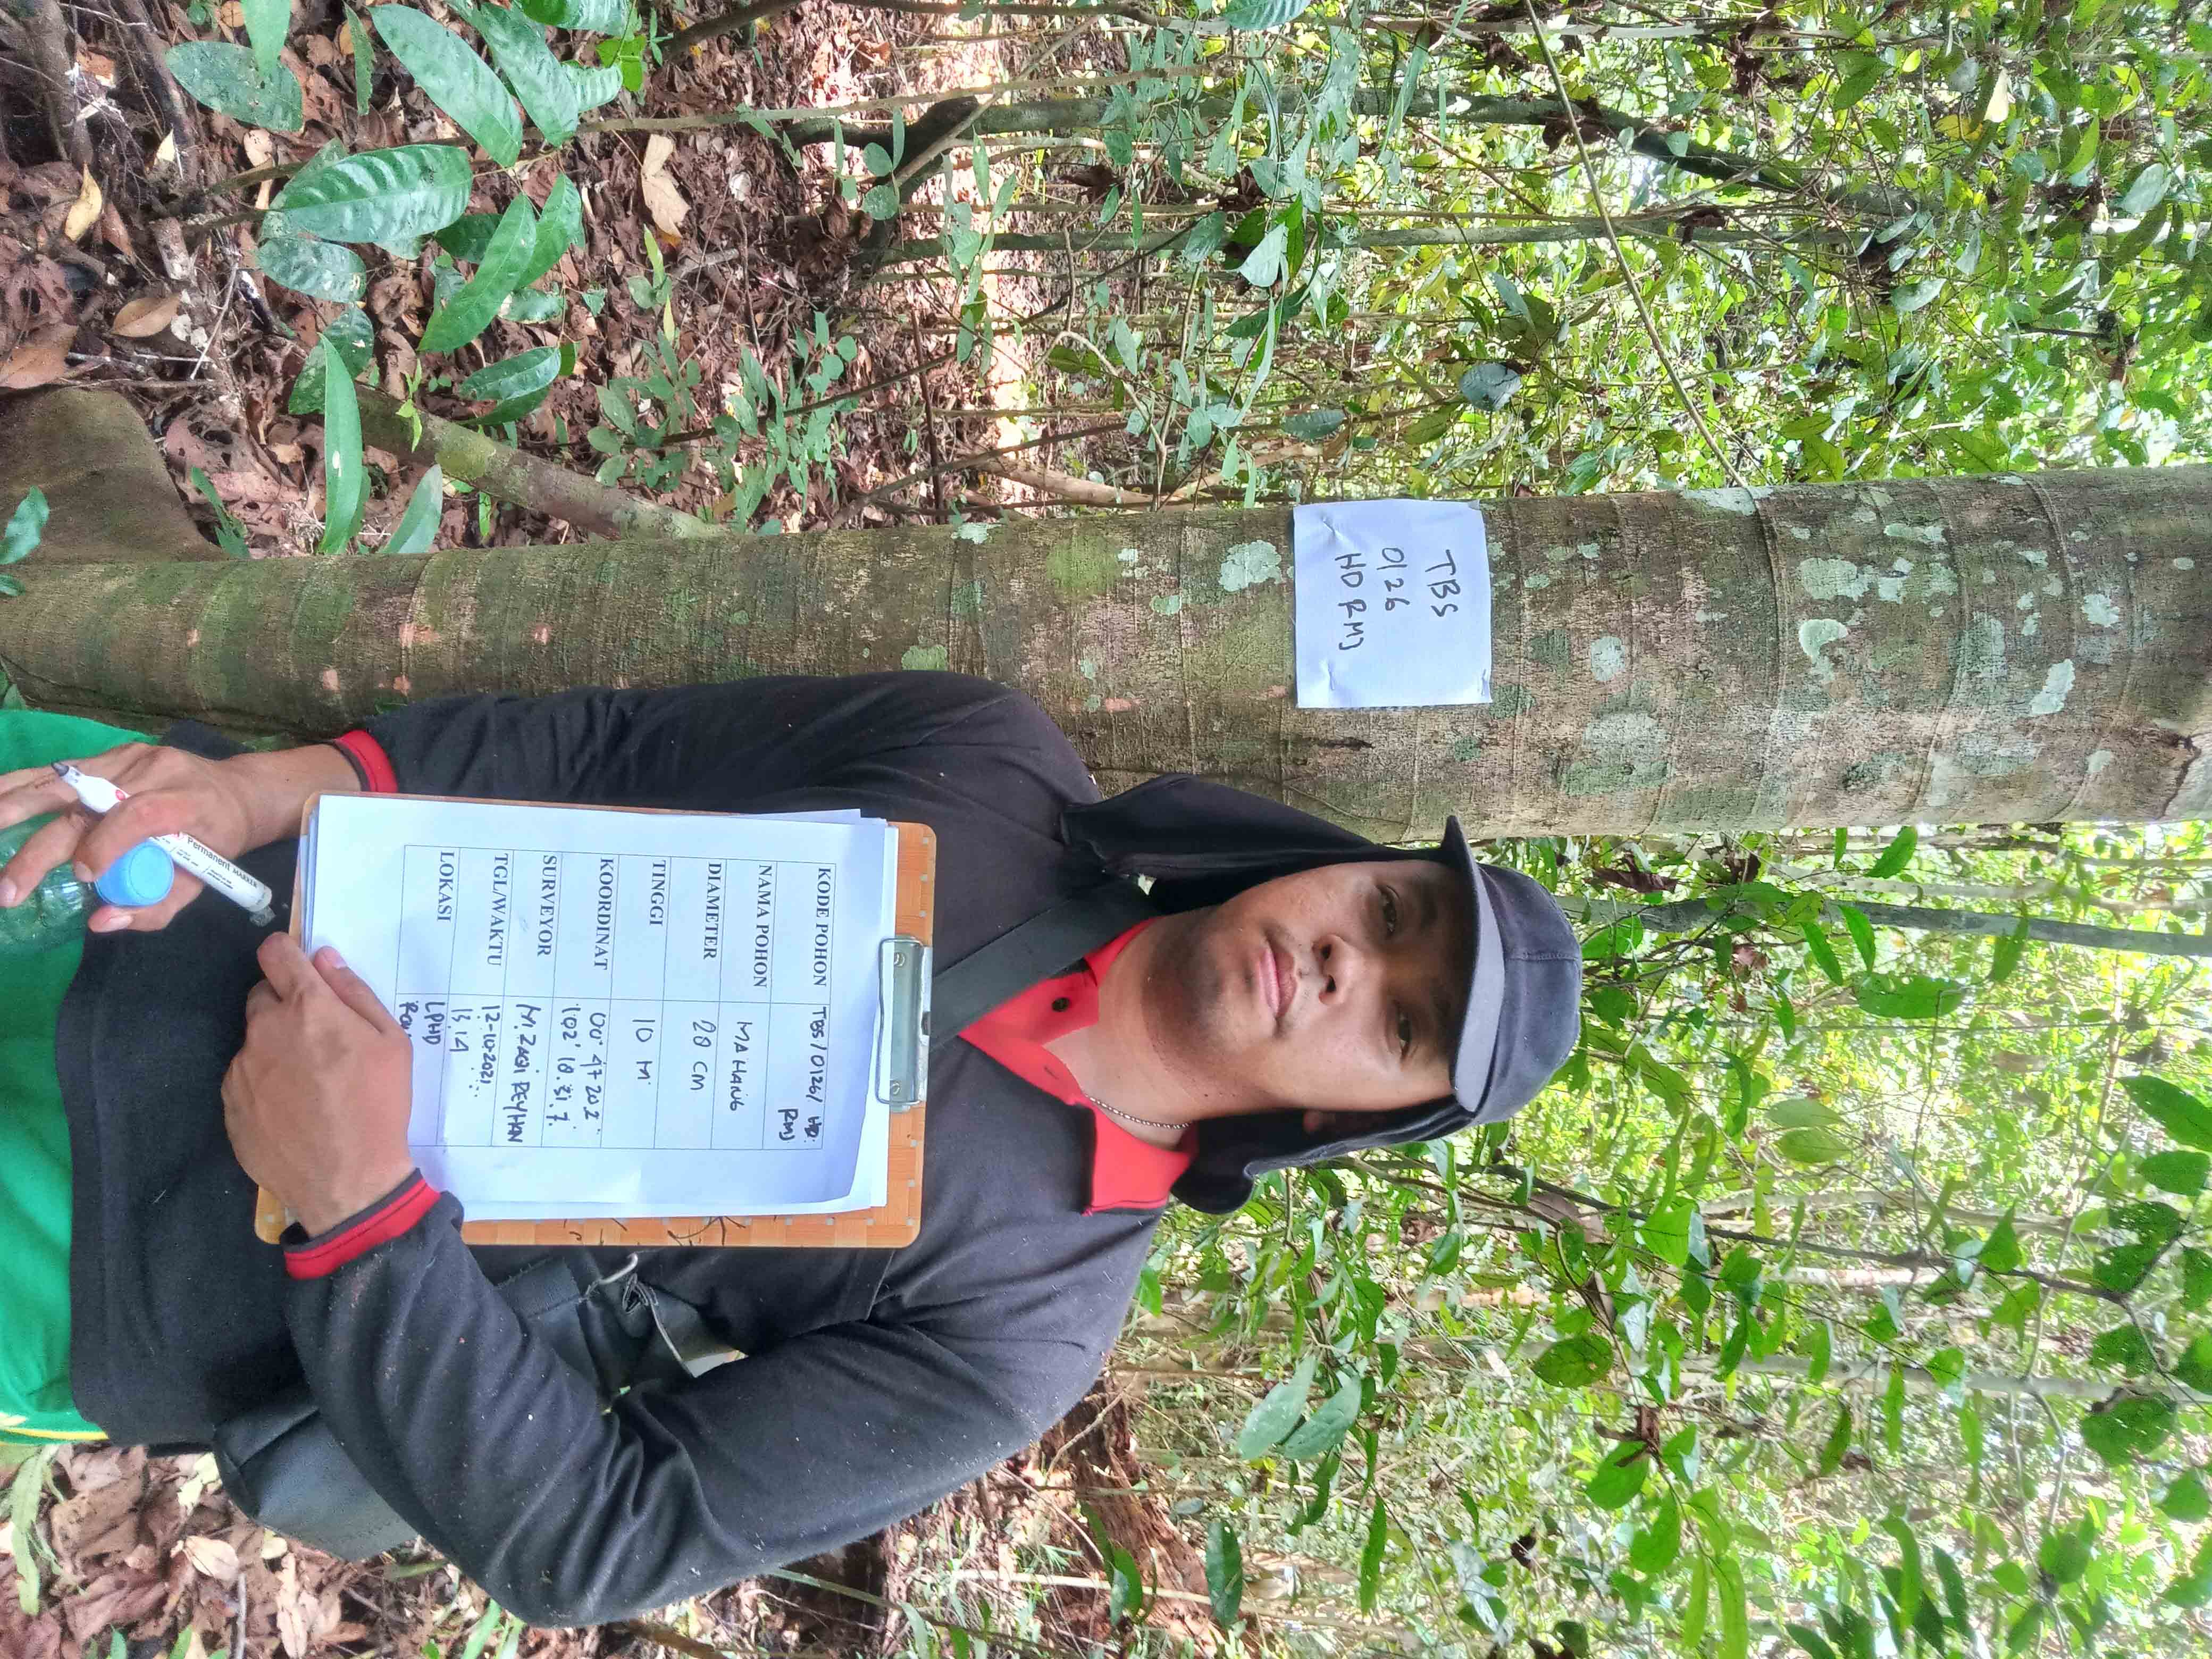 TBS
0126
HD RMJ
KODE POHON TBS/0126/ HD.
RMJ
NAMA POHON MAHANG
DIAMETER 28 CM
TINGGI 10 M
KOORDINAT 00° 47 20.2
102° 18.31.7.
SURVEYOR M. ZAQI REYHAN
TGL/WAKTU 12-10-2021
13.14
LOKASI LPHD
Permanent MARKER